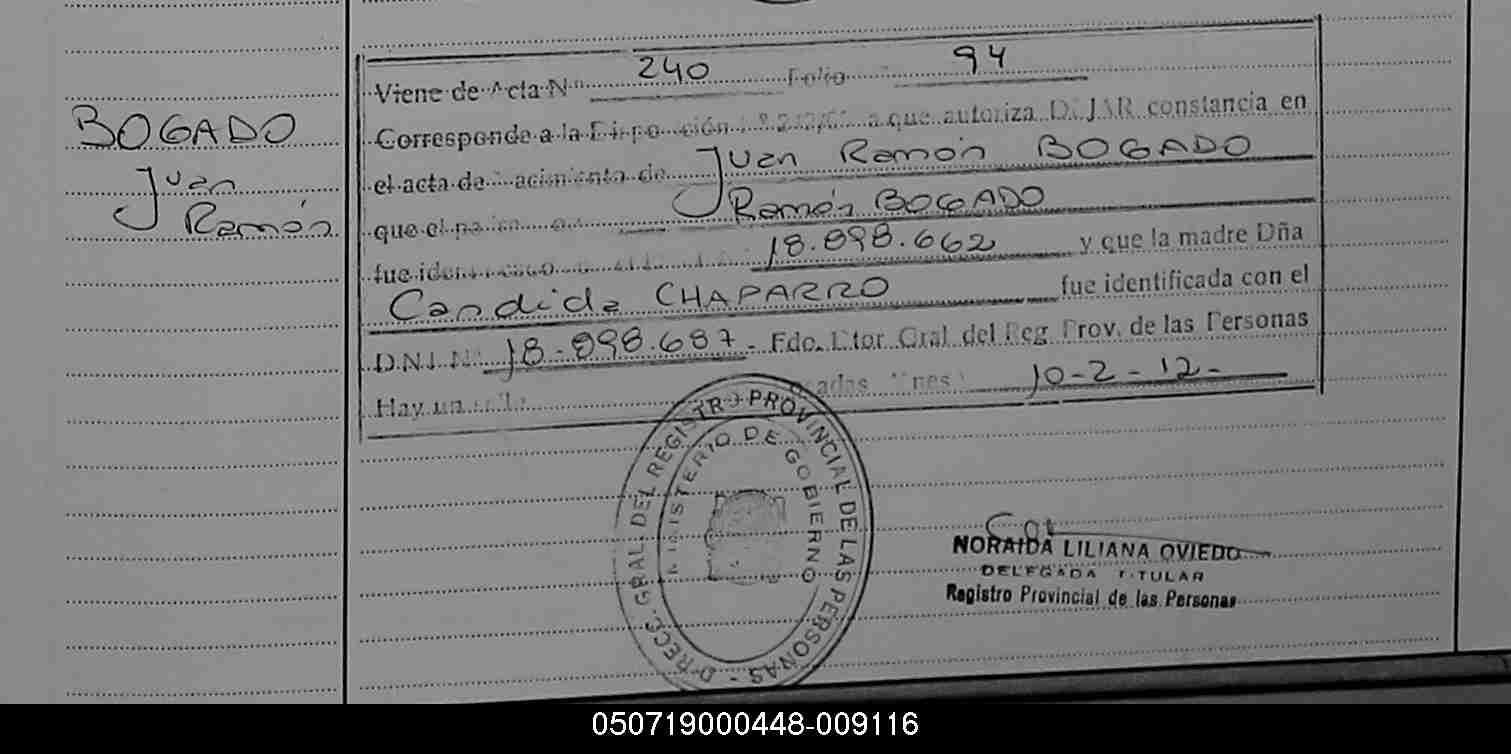 Viene de Acta Nº 240 Folio 94
BOGADO
Corresponde a la que autoriza DEJAR constancia en
Juan
el acta de nacimiento de Juan Ramón BOGADO
Ramón
que el Ramón BOGADO
fue 18.898.662 y que la madre Dña
Candida CHAPARRO fue identificada con el
D.N.I. Nº 18-898.687- Fdo. Dtor Gral del Reg Prov. de las Personas
Hay un sello 10-2-12-
DIRECC. GRAL. DEL REGISTRO PROVINCIAL DE LAS PERSONAS -
MINISTERIO DE GOBIERNO
NORAIDA LILIANA OVIEDO
DELEGADA TITULAR
Registro Provincial de las Personas
050719000448-009116